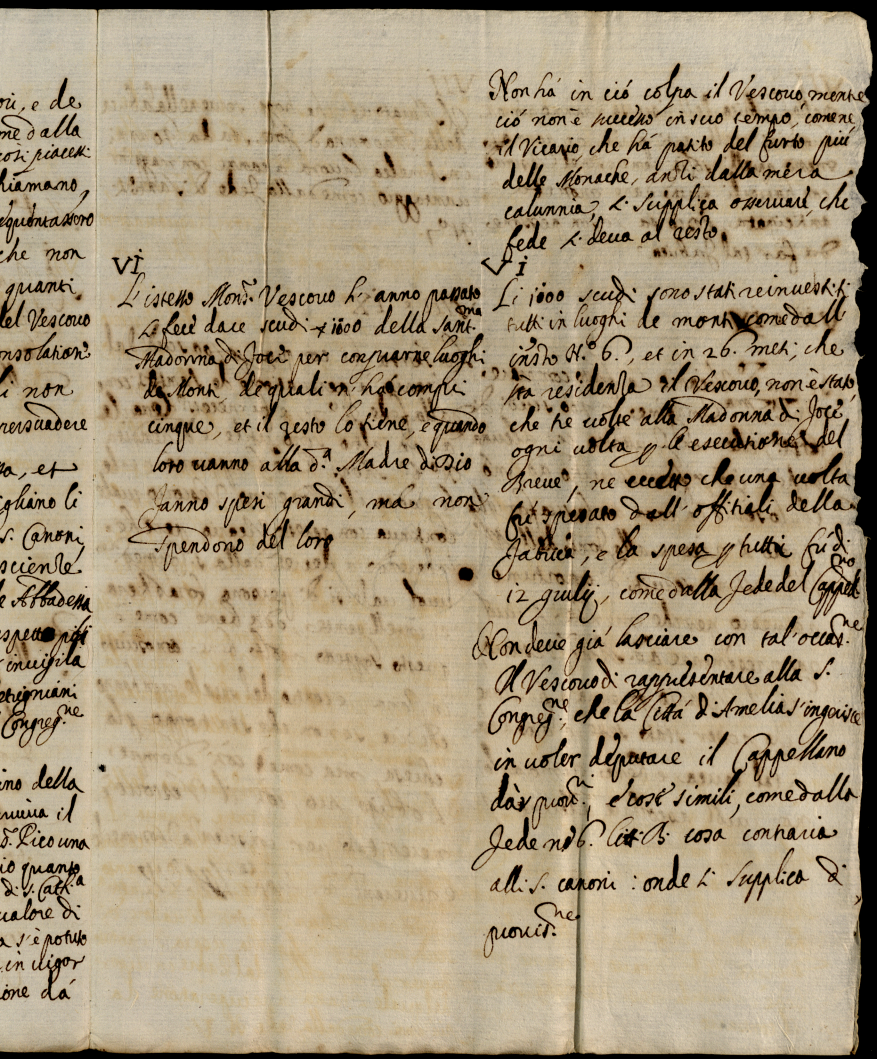 ori, e de
me dalla
così piacesse
hiamano,
che non
quanti
del Vescovo
nsolatione
li non
persuadere
sa, et
igliano li
S. Canoni,
scienze
e Abbadessa
invigila
Congreg.ne
ino della
il
S. Pico una
io quanto
di S. Catt.a
valore di
a s'è potuto
in vigor
ione dà
VI
L'istesso Mons.r Vescovo l'anno passato
fece dare scudi 1000 della Sant.ma
Madonna di Foce per comprarne luoghi
de Monti, de quali n'ha compri
cinque, et il resto lo tiene, e quando
loro vanno alla d.a Madre di Dio
fanno spesi grandi, ma non
spendono del loro
Non hà in ciò colpa il Vescovo, mentre
ciò non è successo in suo tempo, come nè
il Vicario, che hà patito del furto più
delle Monache, anzi dalla mera
calunnia, si supplica osservare, che
fede si deva al resto.
VI
Li 1000 scudi sono stati reinvestiti
tutti in luoghi de monti come dall'
in s.to N.o 6., et in 26. mesi, che
fà residenza il Vescovo, non è stato,
che tre volte alla Madonna di Foce
ogni volta p l'esecutione del
Breve, ne eccetto che una volta
fù spesato dall'offitiali della
fabrica, e la spesa p tutti fù di
12 giulij, come dalla fede del Cappel.no
Non deve già lasciare con tal'occas.ne
Il Vescovo di rappresentare alla S.
Congreg.ne, che la Città di Amelia s'ingerisce
in voler deputare il Cappellano
dar, e cose simili, come dalla
fede n.o 6. litt. B. cosa contraria
alli S. canoni: onde si supplica di
provis.ne